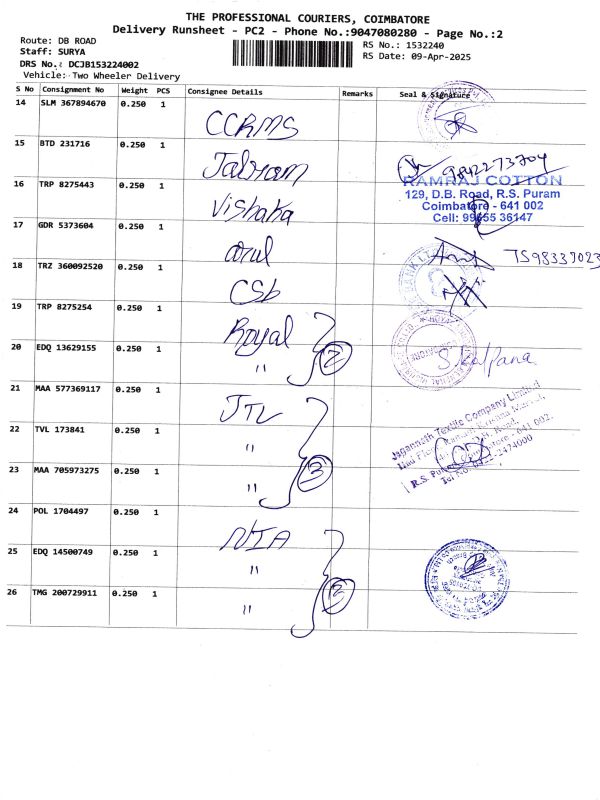 THE PROFESSIONAL COURIERS, COIMBATORE
Delivery Runsheet - PC2 - Phone No.:9047080280 - Page No.:2
Route: DB ROAD
Staff: SURYA
DRS No.: DCJB153224002
Vehicle: Two Wheeler Delivery
RS No.: 1532240
RS Date: 09-Apr-2025
S No Consignment No Weight PCS Consignee Details Remarks Seal & Signature
14 SLM 367894670 0.250 1 CCRMS
15 BTD 231716 0.250 1 Jairam 9842273704
16 TRP 8275443 0.250 1 Vishaka
RAMRAJ COTTON
129, D.B. Road, R.S. Puram
Coimbatore - 641 002
Cell: 99455 36147
17 GDR 5373604 0.250 1 arul
18 TRZ 360092520 0.250 1 CSb
19 TRP 8275254 0.250 1 Royal
20 EDQ 13629155 0.250 1 " 2 S. Kalpana
21 MAA 577369117 0.250 1 JTL
22 TVL 173841 0.250 1 "
23 MAA 705973275 0.250 1 " 3
Jagannath Textile Company Limited
R.S. Puram, Coimbatore - 641 002.
24 POL 1704497 0.250 1 NIA
25 EDQ 14500749 0.250 1 "
26 TMG 200729911 0.250 1 "